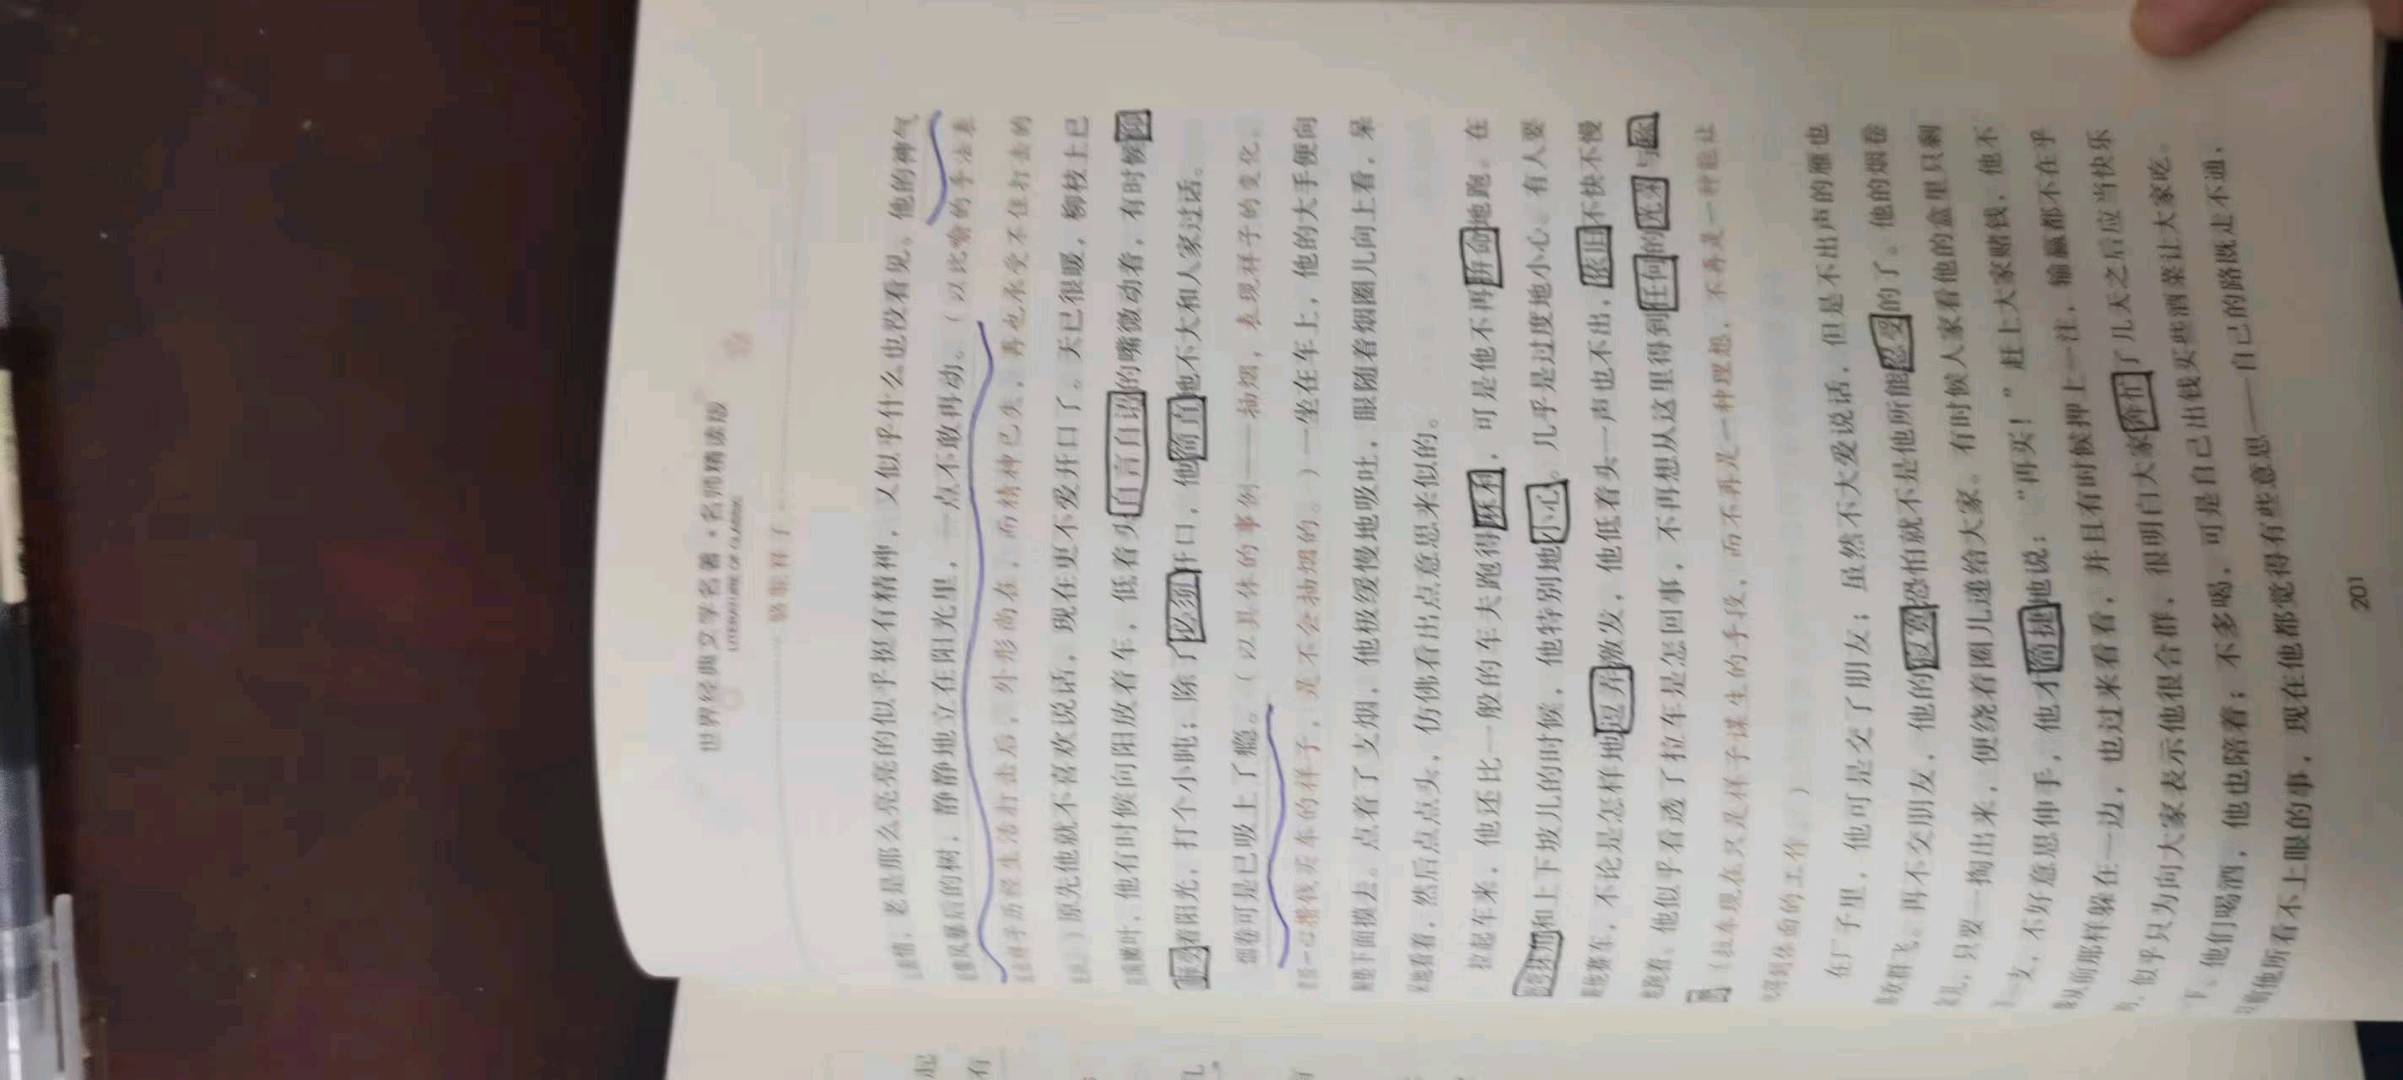 世界经典文学名著·名师精读版
LITERATURE OF CLASSIC
骆驼祥子
老是那么亮亮的似乎挺有精神，又似乎什么也没看见。他的神气
暴风暴后的树，静静地立在阳光里，一点不敢再动。（以比喻的手法表
祥子历经生活打击后，外形尚在，而精神已失，再也承受不住打击的
）原先他就不喜欢说话，现在更不爱开口了。天已很暖，柳枝上已
嫩叶，他有时候向阳放着车，低着头自言自语的嘴微动着，有时候仰
着阳光，打个小盹；除了必须开口，他简直地不大和人家过话。
烟卷可是已吸上了瘾。（以具体的事例——抽烟，表现祥子的变化。
一心攒钱买车的样子，是不会抽烟的。）一坐在车上，他的大手便向
垫下面摸去。点着了支烟，他极缓慢地吸吐，眼随着烟圈儿向上看，呆
地看着，然后点点头，仿佛看出点意思来似的。
拉起车来，他还比一般的车夫跑得麻利，可是他不再拼命地跑。在
和上下坡儿的时候，他特别地小心。几乎是过度地小心。有人要
赛车，不论是怎样地逗弄激发，他低着头一声也不出，依旧不快不慢
跑着。他似乎看透了拉车是怎回事，不再想从这里得到任何的光荣与称
（拉车现在只是祥子谋生的手段，而不再是一种理想，不再是一种能让
得到体面的工作。）
在厂子里，他可是交了朋友；虽然不大爱说话，但是不出声的雁也
群飞。再不交朋友，他的寂寞恐怕就不是他所能忍受的了。他的烟卷
只要一掏出来，便绕着圈儿递给大家。有时候人家看他的盒里只剩
一支，不好意思伸手，他才简捷地说：“再买！”赶上大家赌钱，他不
从前那样躲在一边，也过来看看，并且有时候押上一注，输赢都不在乎
似乎只为向大家表示他很合群，很明白大家奔忙了几天之后应当快乐
下。他们喝酒，他也陪着；不多喝，可是自己出钱买些酒菜让大家吃。
他所看不上眼的事，现在他都觉得有些意思——自己的路既走不通，
201